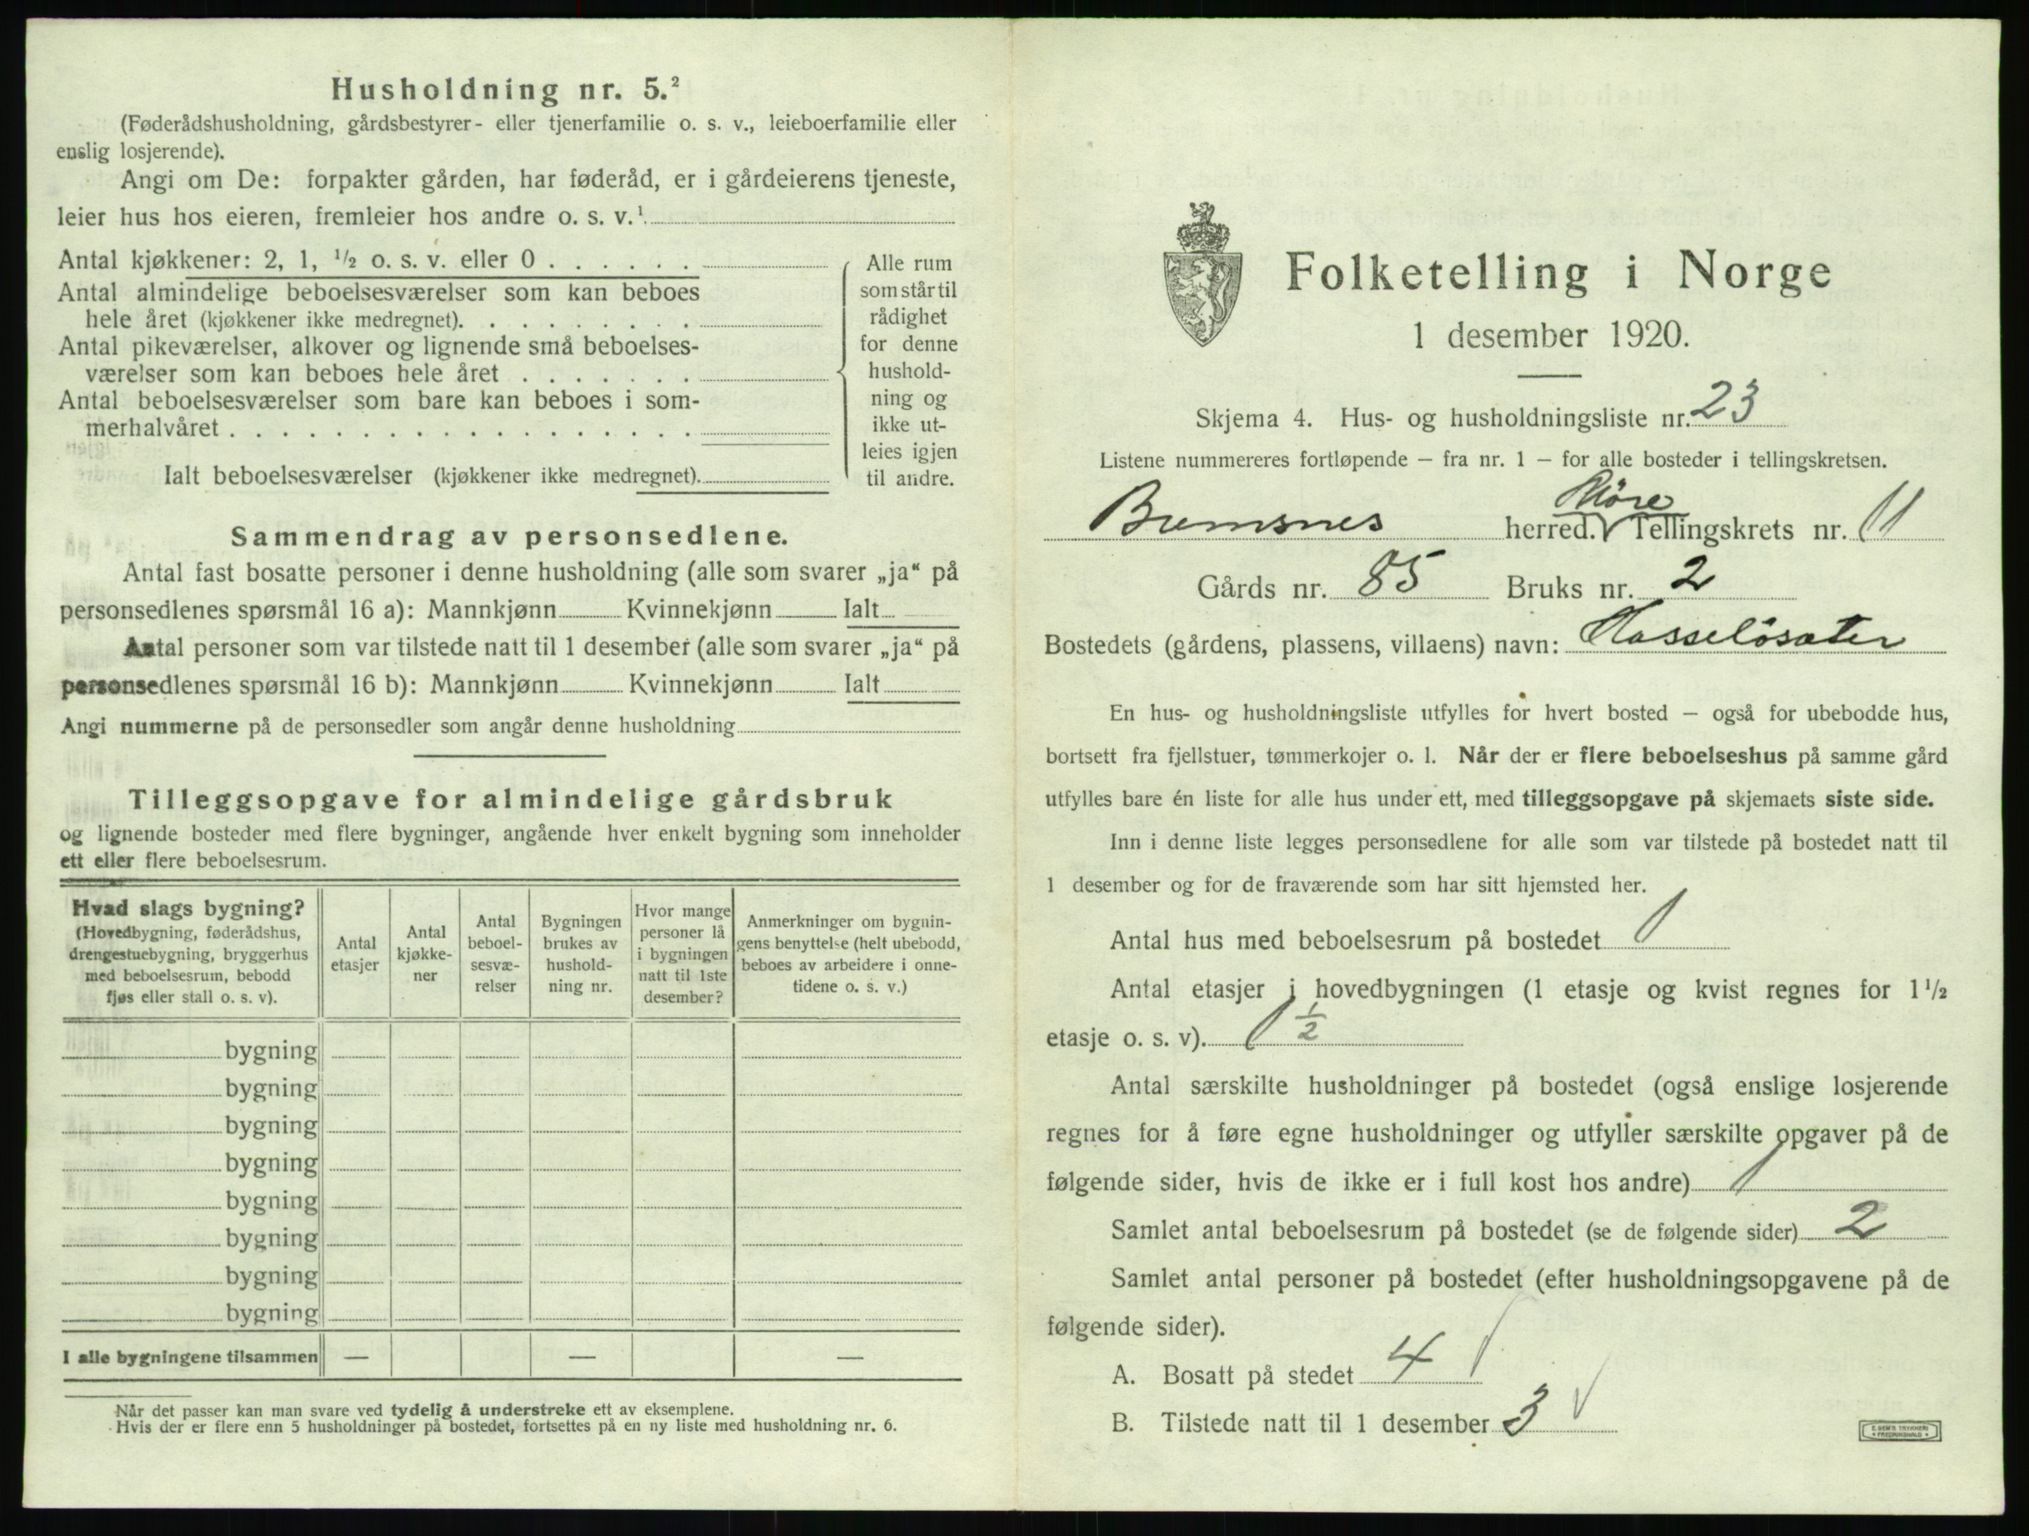 Husholdning nr. 5.²
(Føderådshusholdning, gårdsbestyrer- eller tjenerfamilie o. s. v., leieboerfamilie eller
enslig losjerende).
Angi om De: forpakter gården, har føderåd, er i gårdeierens tjeneste,
leier hus hos eieren, fremleier hos andre o. s. v.¹
Antal kjøkkener: 2, 1, ½ o. s. v. eller 0 . . . . . .
Antal almindelige beboelsesværelser som kan beboes
hele året (kjøkkener ikke medregnet). . . . . . . . .
Antal pikeværelser, alkover og lignende små beboelses-
værelser som kan beboes hele året . . . . . . .
Antal beboelsesværelser som bare kan beboes i som-
merhalvåret . . . . . . . . . . . . . . . . . .
Ialt beboelsesværelser (kjøkkener ikke medregnet).
Alle rum
som står til
rådighet
for denne
hushold-
ning og
ikke ut-
leies igjen
til andre.
Sammendrag av personsedlene.
Antal fast bosatte personer i denne husholdning (alle som svarer „ja“ på
personsedlenes spørsmål 16 a): Mannkjønn Kvinnekjønn Ialt
Antal personer som var tilstede natt til 1 desember (alle som svarer „ja“ på
personsedlenes spørsmål 16 b): Mannkjønn Kvinnekjønn Ialt
Angi nummerne på de personsedler som angår denne husholdning
Tilleggsopgave for almindelige gårdsbruk
og lignende bosteder med flere bygninger, angående hver enkelt bygning som inneholder
ett eller flere beboelsesrum.
Hvad slags bygning?
(Hovedbygning, føderådshus,
drengestuebygning, bryggerhus
med beboelsesrum, bebodd
fjøs eller stall o. s. v).
Antal
etasjer
Antal
kjøkke-
ner
Antal
beboel-
sesvæ-
relser
Bygningen
brukes av
hushold-
ning nr.
Hvor mange
personer lå
i bygningen
natt til 1ste
desember?
Anmerkninger om bygnin-
gens benyttelse (helt ubebodd,
beboes av arbeidere i onne-
tidene o. s. v.)
bygning
bygning
bygning
bygning
bygning
bygning
bygning
bygning
I alle bygningene tilsammen — — —
Når det passer kan man svare ved tydelig å understreke ett av eksemplene.
Hvis der er flere enn 5 husholdninger på bostedet, fortsettes på en ny liste med husholdning nr. 6.
Folketelling i Norge
1 desember 1920.
Skjema 4. Hus- og husholdningsliste nr. 23
Listene nummereres fortløpende — fra nr. 1 — for alle bosteder i tellingskretsen.
Møre
Bremsnes herred. Tellingskrets nr. 11
Gårds nr. 85 Bruks nr. 2
Bostedets (gårdens, plassens, villaens) navn: Hasseløsæter
En hus- og husholdningsliste utfylles for hvert bosted — også for ubebodde hus,
bortsett fra fjellstuer, tømmerkojer o. l. Når der er flere beboelseshus på samme gård
utfylles bare én liste for alle hus under ett, med tilleggsopgave på skjemaets siste side.
Inn i denne liste legges personsedlene for alle som var tilstede på bostedet natt til
1 desember og for de fraværende som har sitt hjemsted her.
Antal hus med beboelsesrum på bostedet 1
Antal etasjer i hovedbygningen (1 etasje og kvist regnes for 1½
etasje o. s. v). 1½
Antal særskilte husholdninger på bostedet (også enslige losjerende
regnes for å føre egne husholdninger og utfyller særskilte opgaver på de
følgende sider, hvis de ikke er i full kost hos andre) 1
Samlet antal beboelsesrum på bostedet (se de følgende sider) 2
Samlet antal personer på bostedet (efter husholdningsopgavene på de
følgende sider).
A. Bosatt på stedet 4
B. Tilstede natt til 1 desember 3